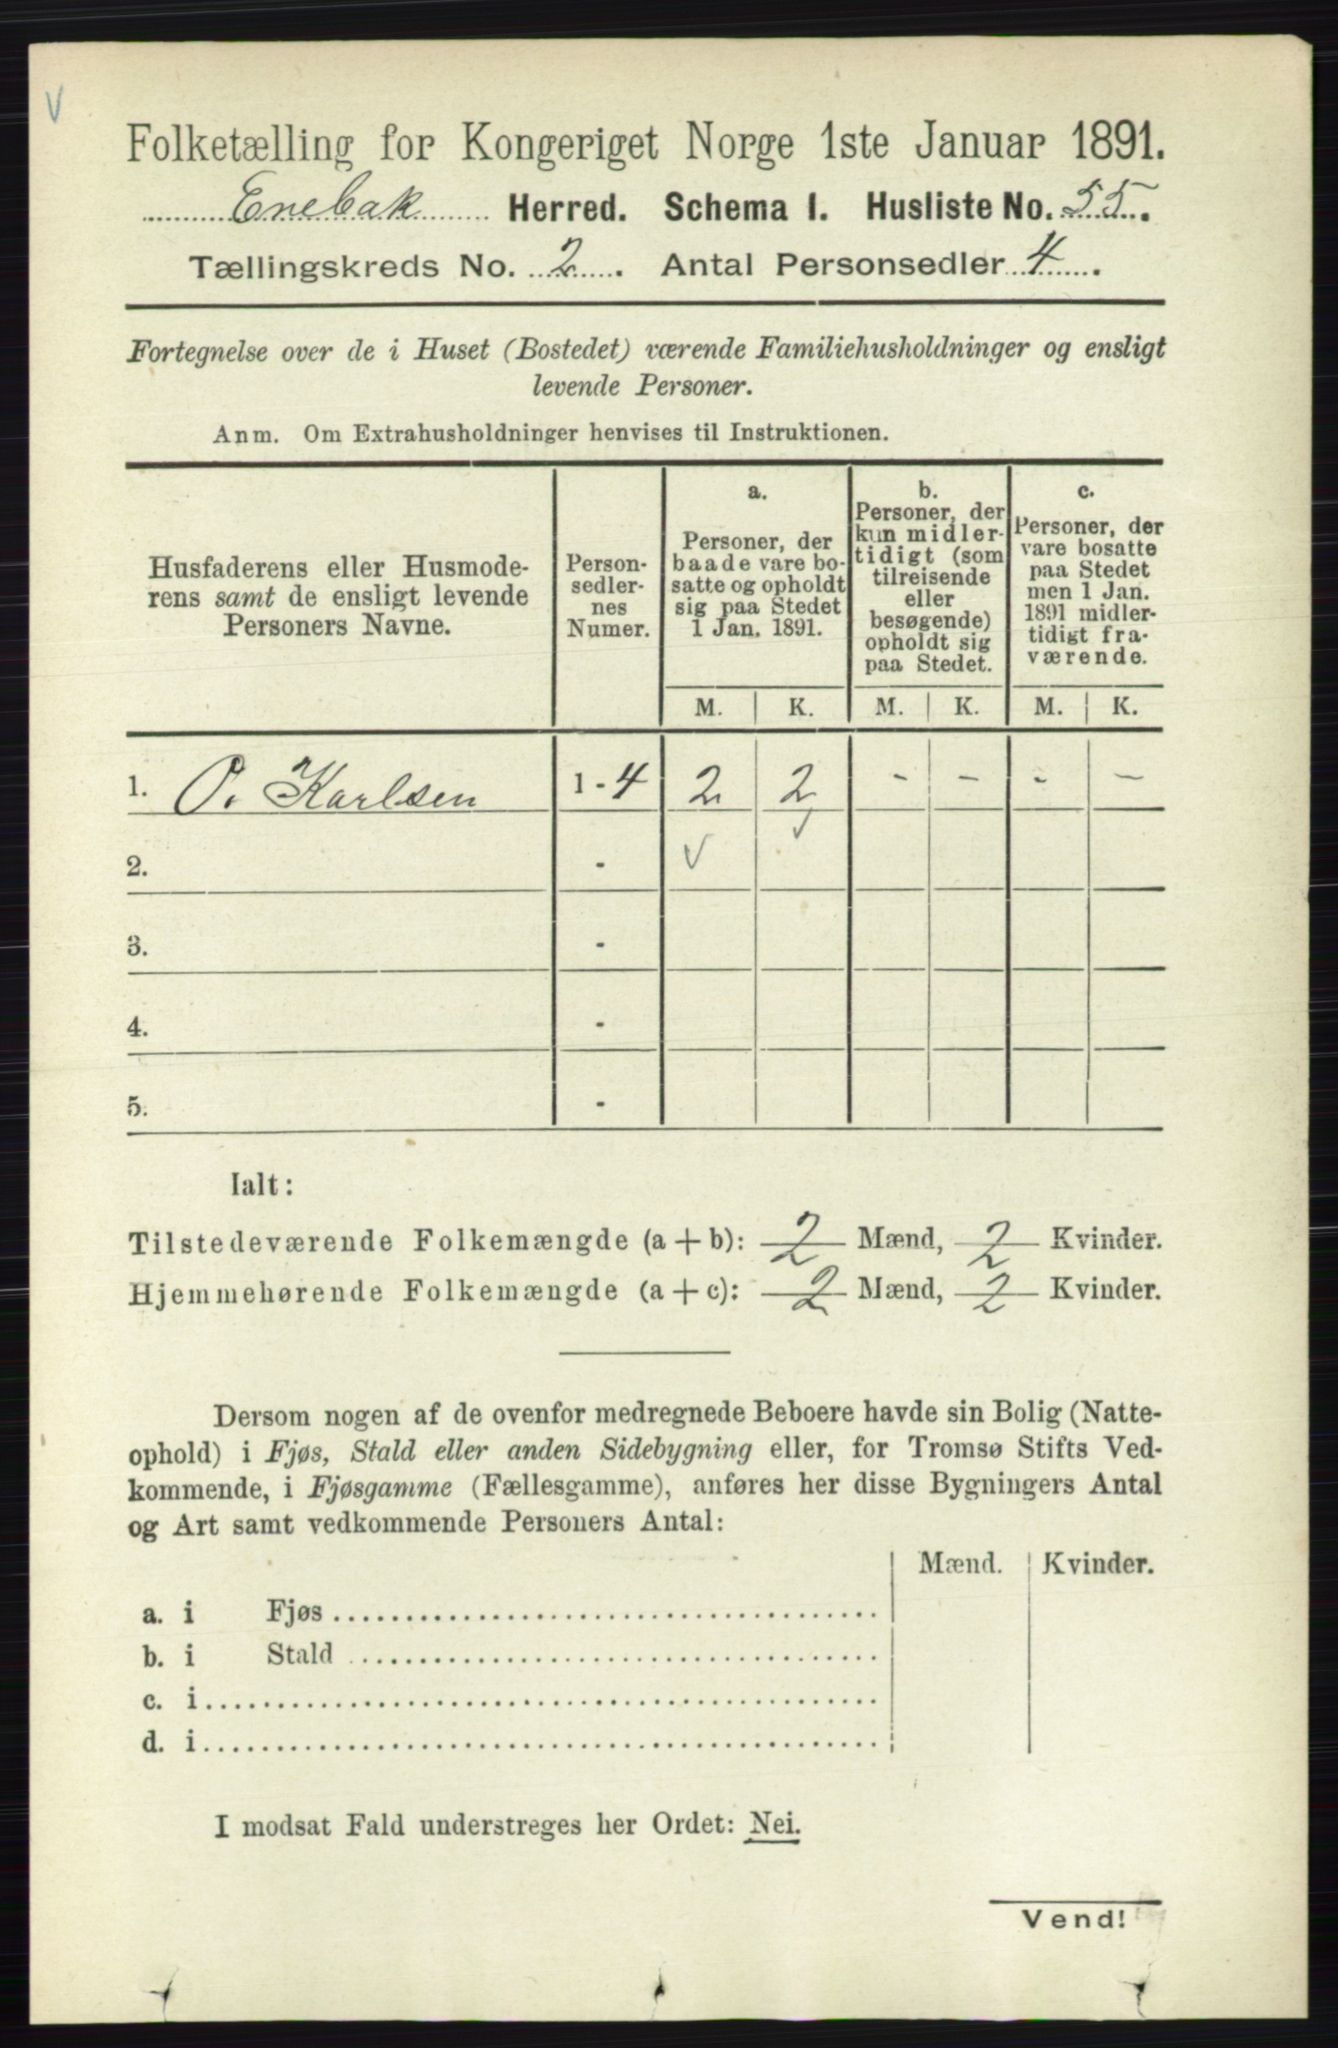 V
Folketælling for Kongeriget Norge 1ste Januar 1891.
Enebak Herred. Schema I. Husliste No. 55.
Tællingskreds No. 2. Antal Personsedler 4.
Fortegnelse over de i Huset (Bostedet) værende Familiehusholdninger og ensligt
levende Personer.
Anm. Om Extrahusholdninger henvises til Instruktionen.
Husfaderens eller Husmode-
rens samt de ensligt levende
Personers Navne.
Person-
sedler-
nes
Numer.
a.
Personer, der
baade vare bo-
satte og opholdt
sig paa Stedet
1 Jan. 1891.
b.
Personer, der
kun midler-
tidigt (som
tilreisende
eller
besøgende)
opholdt sig
paa Stedet.
c.
Personer, der
vare bosatte
paa Stedet
men 1 Jan.
1891 midler-
tidigt fra-
værende.
M. K. M. K. M. K.
1. O. Karlsen 1 - 4 2 2 - - - -
2. - √ √
3. -
4. -
5. -
Ialt:
Tilstedeværende Folkemængde (a + b): 2 Mænd, 2 Kvinder.
Hjemmehørende Folkemængde (a + c): 2 Mænd, 2 Kvinder.
Dersom nogen af de ovenfor medregnede Beboere havde sin Bolig (Natte-
ophold) i Fjøs, Stald eller anden Sidebygning eller, for Tromsø Stifts Ved-
kommende, i Fjøsgamme (Fællesgamme), anføres her disse Bygningers Antal
og Art samt vedkommende Personers Antal:
Mænd. Kvinder.
a. i Fjøs
b. i Stald
c. i
d. i
I modsat Fald understreges her Ordet: Nei.
Vend!